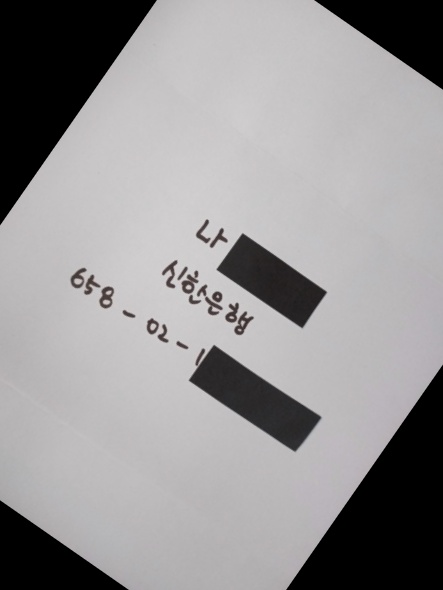 나
신한은행
658-02-1